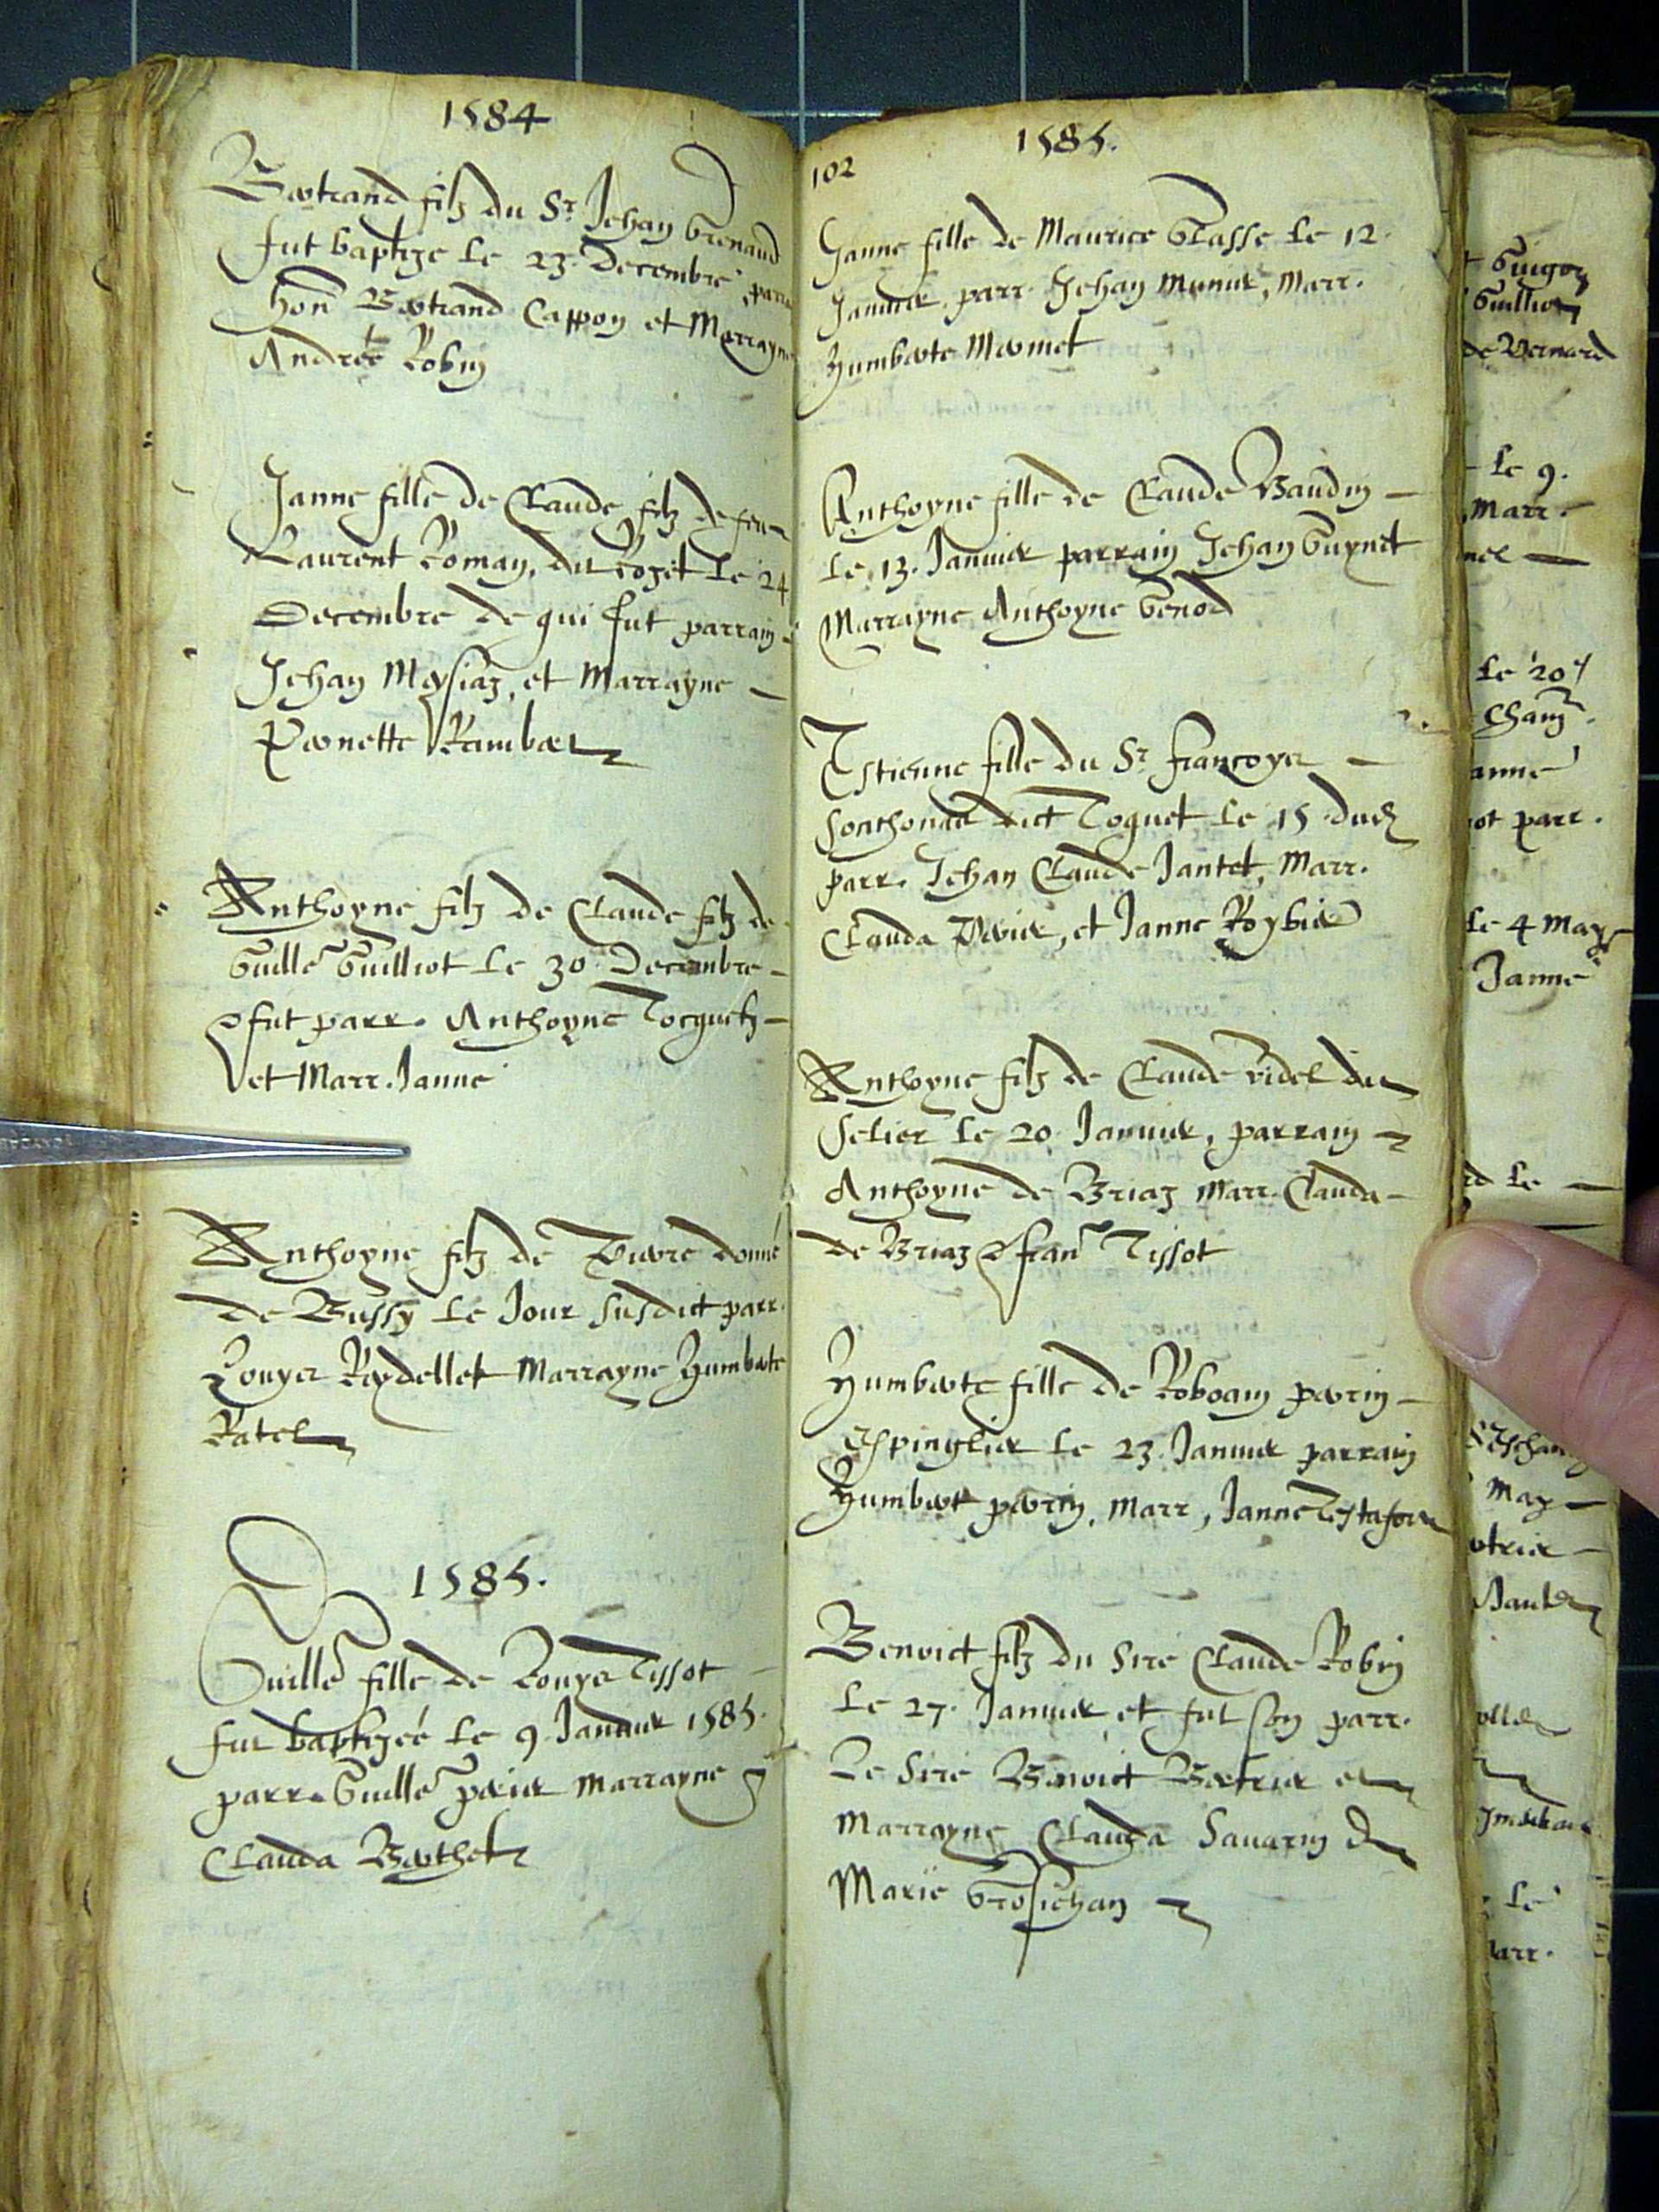 1584
Bertrand filz du Sr Jehan Grenaud
fut baptize le 23. Decembre, parr
hon Bertrand Cappon et Marrayne
Andrée Robin
Janne fille de Claude filz de feu
Laurent Roman, dit Rozet le 24
Decembre de qui fut parrain
Jehan Meysiaz, et Marrayne
Pernette Rambert
Anthoyne filz de Claude filz de
Guille Guilliot le 30 Decembre
& fut parr. Anthoyne Tocquetz
et Marr. Janne
Anthoyne filz de Pierre donné
de Bussy le Jour susdict parr.
Louys Reydellet Marrayne Humberte
Ratel
1585.
Guille fille de Louys Tissot
fut baptizeé le 9. Januier 1585.
parr. Guille perier marrayne
Clauda Berthet
1585.
102
Janne fille de Maurice Glasse le 12.
Januier parr. Jehan Munier, Marr.
Humberte Mermet
Anthoyne fille de Claude Baudin
le 13. Januier parrain Jehan Guynet
Marrayne Anthoyne Genod
Estienne fille du Sr françoys
Sonthonaz dict Toquet le 15 dud
parr. Jehan Claude Jantet, Marr.
Clauda Perier, et Janne Roybier
Anthoyne filz de Claude ridel dit
Selier le 20 Januier, parrain
Anthoyne de Briaz Marr. Clauda
de Briaz & fran Tissot
Humberte fille de Roboam perrin
Espinglier le 23. Januier parrain
Humbert perrin, Marr, Janne Testafort
Benoict filz du Sire Claude Robin
le 27. Januier et fut son parr.
Le Sire Benoict Bertrier et
Marrayne Clauda Sauarin &
Marie Grosjehan
Guigon
Guilliot
de Bernard
le 9.
Marr.
nel
le 20
Cham
anne
ot parr.
le 4 May
Janne
rd le
May
le
arr.